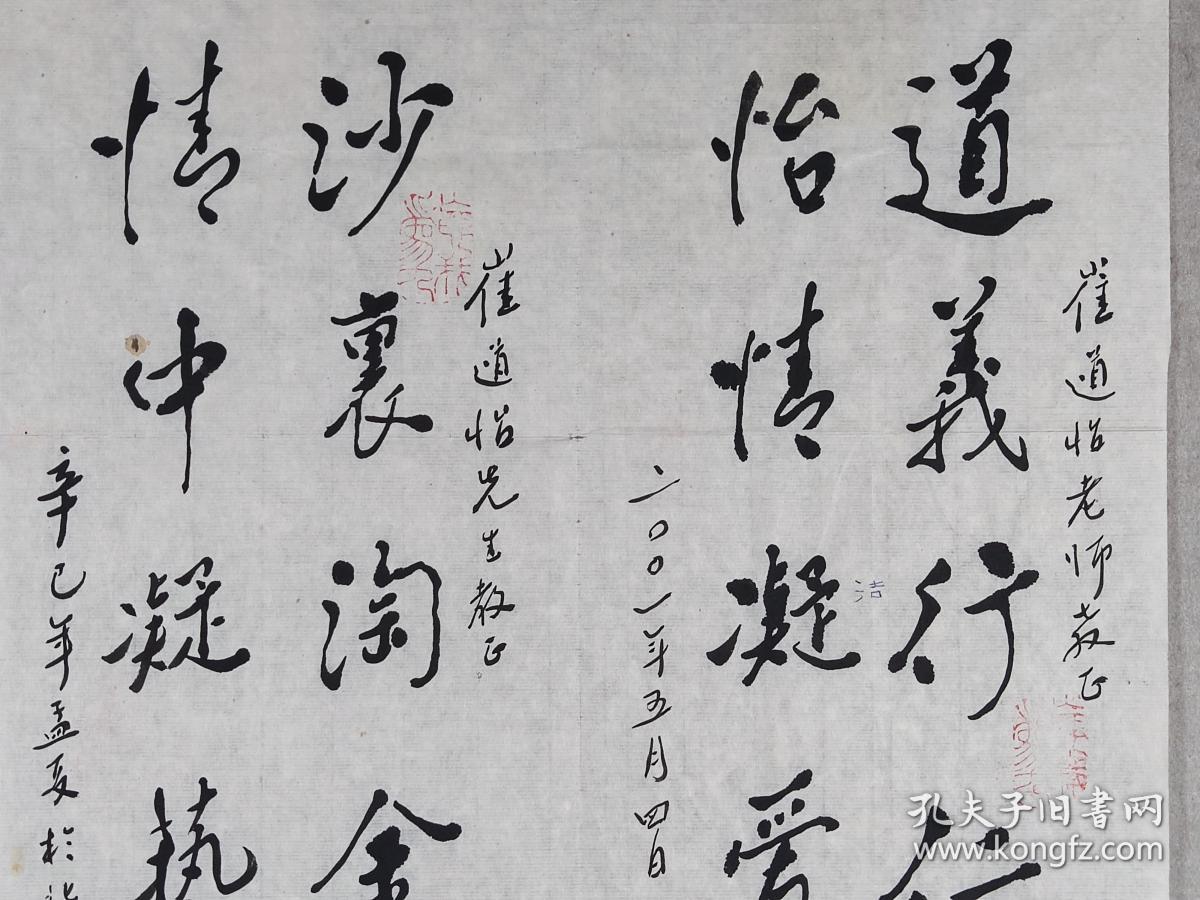 崔道怡老师教正
道義行
怡情凝愛
洁
二〇〇一年五月四日
崔道怡先生教正
沙裏淘金
情中凝執
辛巳年孟夏於
孔夫子旧書网
www.kongfz.com